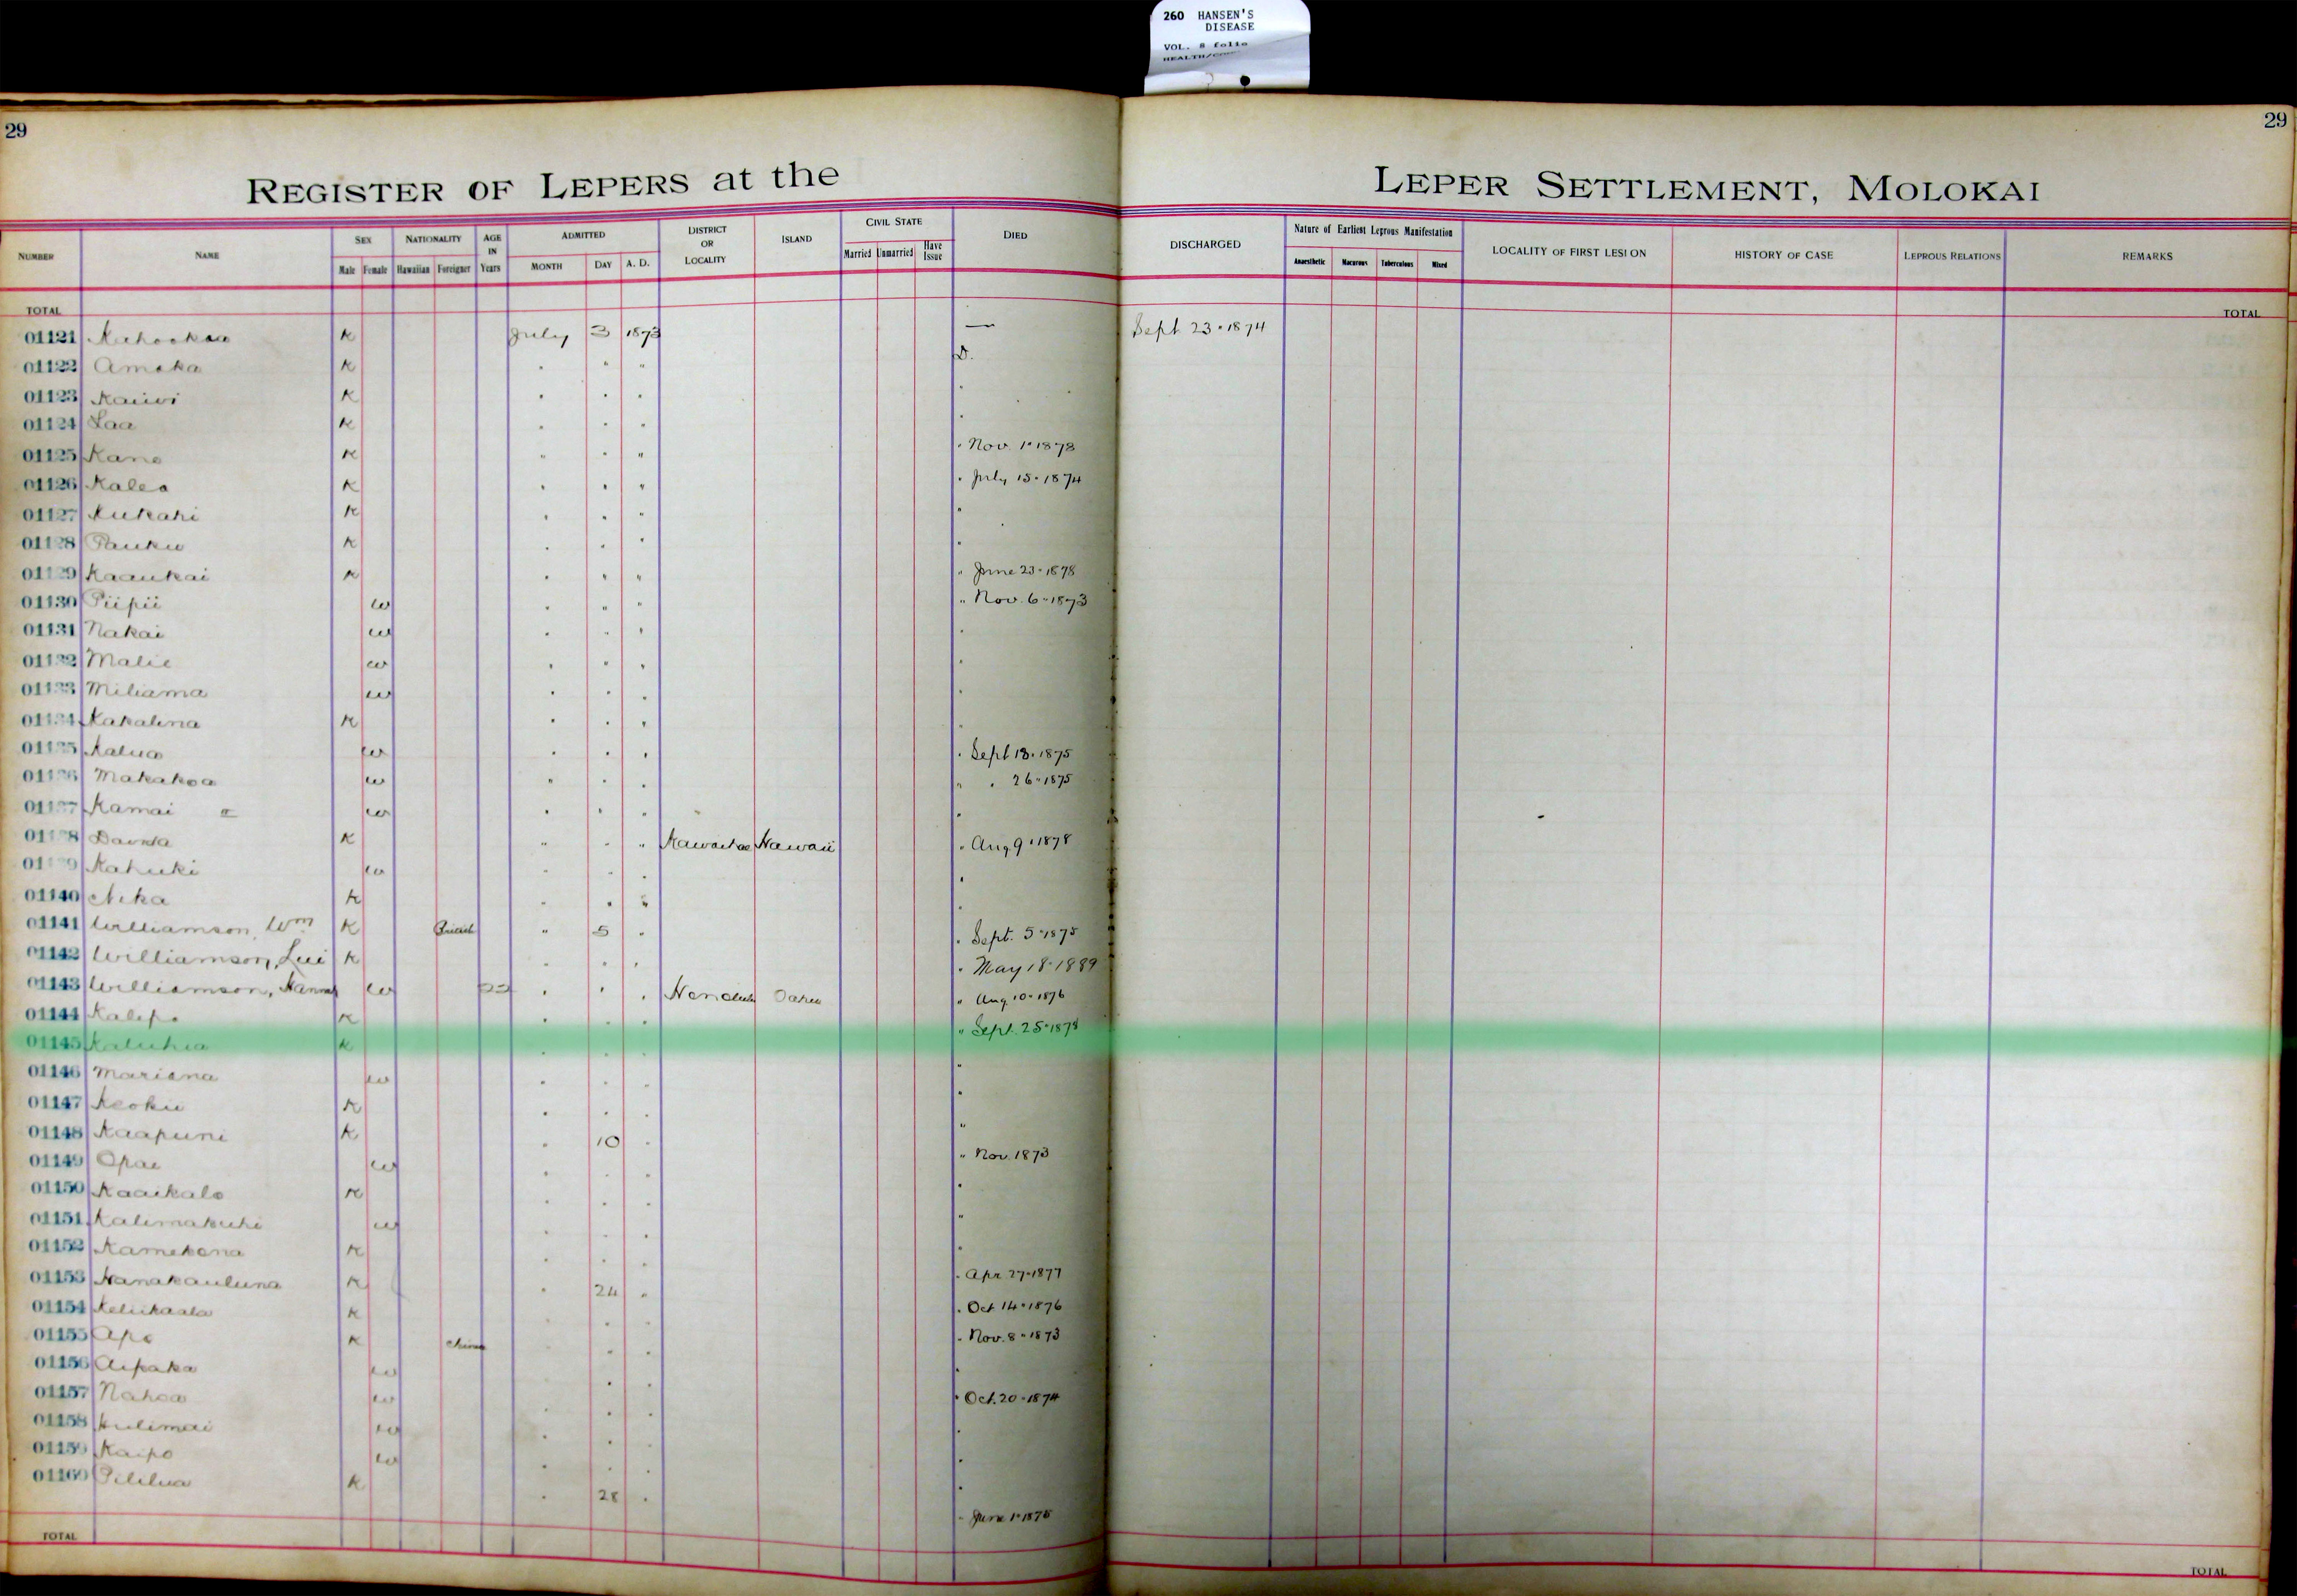 260 HANSEN'S
DISEASE
VOL. 8 folio
29
29
REGISTER OF LEPERS at the LEPER SETTLEMENT, MOLOKAI
NUMBER NAME SEX NATIONALITY AGE IN Years ADMITTED DISTRICT OR LOCALITY ISLAND CIVIL STATE DIED DISCHARGED Nature of Earliest Leprous Manifestation LOCALITY OF FIRST LESION HISTORY OF CASE LEPROUS RELATIONS REMARKS
Male Female Hawaiian Foreigner MONTH DAY A. D. Married Unmarried Have Issue Anaesthetic Macurous Tuberculous Mixed
TOTAL TOTAL
01121 K July 3 1873 — Sept 23 · 1874
01122 Amaka K " " " D.
01123 Kaiwi K " " " "
01124 Laa K " " " "
01125 Kane K " " " " Nov. 1 · 1878
01126 Kalea K " " " " July 15 · 1874
01127 Kukahi K " " " "
01128 Pauku K " " " "
01129 Kaaukai K " " " " June 23 · 1878
01130 Piipii w " " " " Nov. 6 · 1873
01131 Nakai w " " " "
01132 Malie w " " " "
01133 Miliama w " " " "
01134 Kakalina K " " " "
01135 Kalua w " " " " Sept 18 · 1875
01136 Makakoa w " " " " " 26 · 1875
01137 Kamai w " " " "
01138 K " " " Kawaihae Hawaii " Aug 9 · 1878
01139 Kahuki w " " " "
01140 Nika K " " " "
01141 Williamson, Wm K British " 5 " " Sept. 5 · 1875
01142 Williamson, Lui K " " " " May 18 · 1889
01143 Williamson, Hannah w " " " Honolulu Oahu " Aug. 10 · 1876
01144 Kalepo K " " " " Sept. 25 · 1878
01145 Kaluhia K " " " "
01146 Mariana w " " " "
01147 Keoku K " " " "
01148 Kaapuni K " 10 " " Nov. 1873
01149 Opae w " " " "
01150 Kaaikalo K " " " "
01151 Kalimakuhi w " " " "
01152 Kamekona K " " " " Apr 27 · 1877
01153 Nanakauluna K " 24 " " Oct 14 · 1876
01154 Keliikaala K " " " " Nov. 8 · 1873
01155 Apo K China " " " "
01156 Aipaka w " " " " Oct. 20 · 1874
01157 Nahoa w " " " "
01158 Kulimai w " " " "
01159 Kaipo w " " " "
01160 Pililua K " 28 " " June 1 · 1875
TOTAL TOTAL